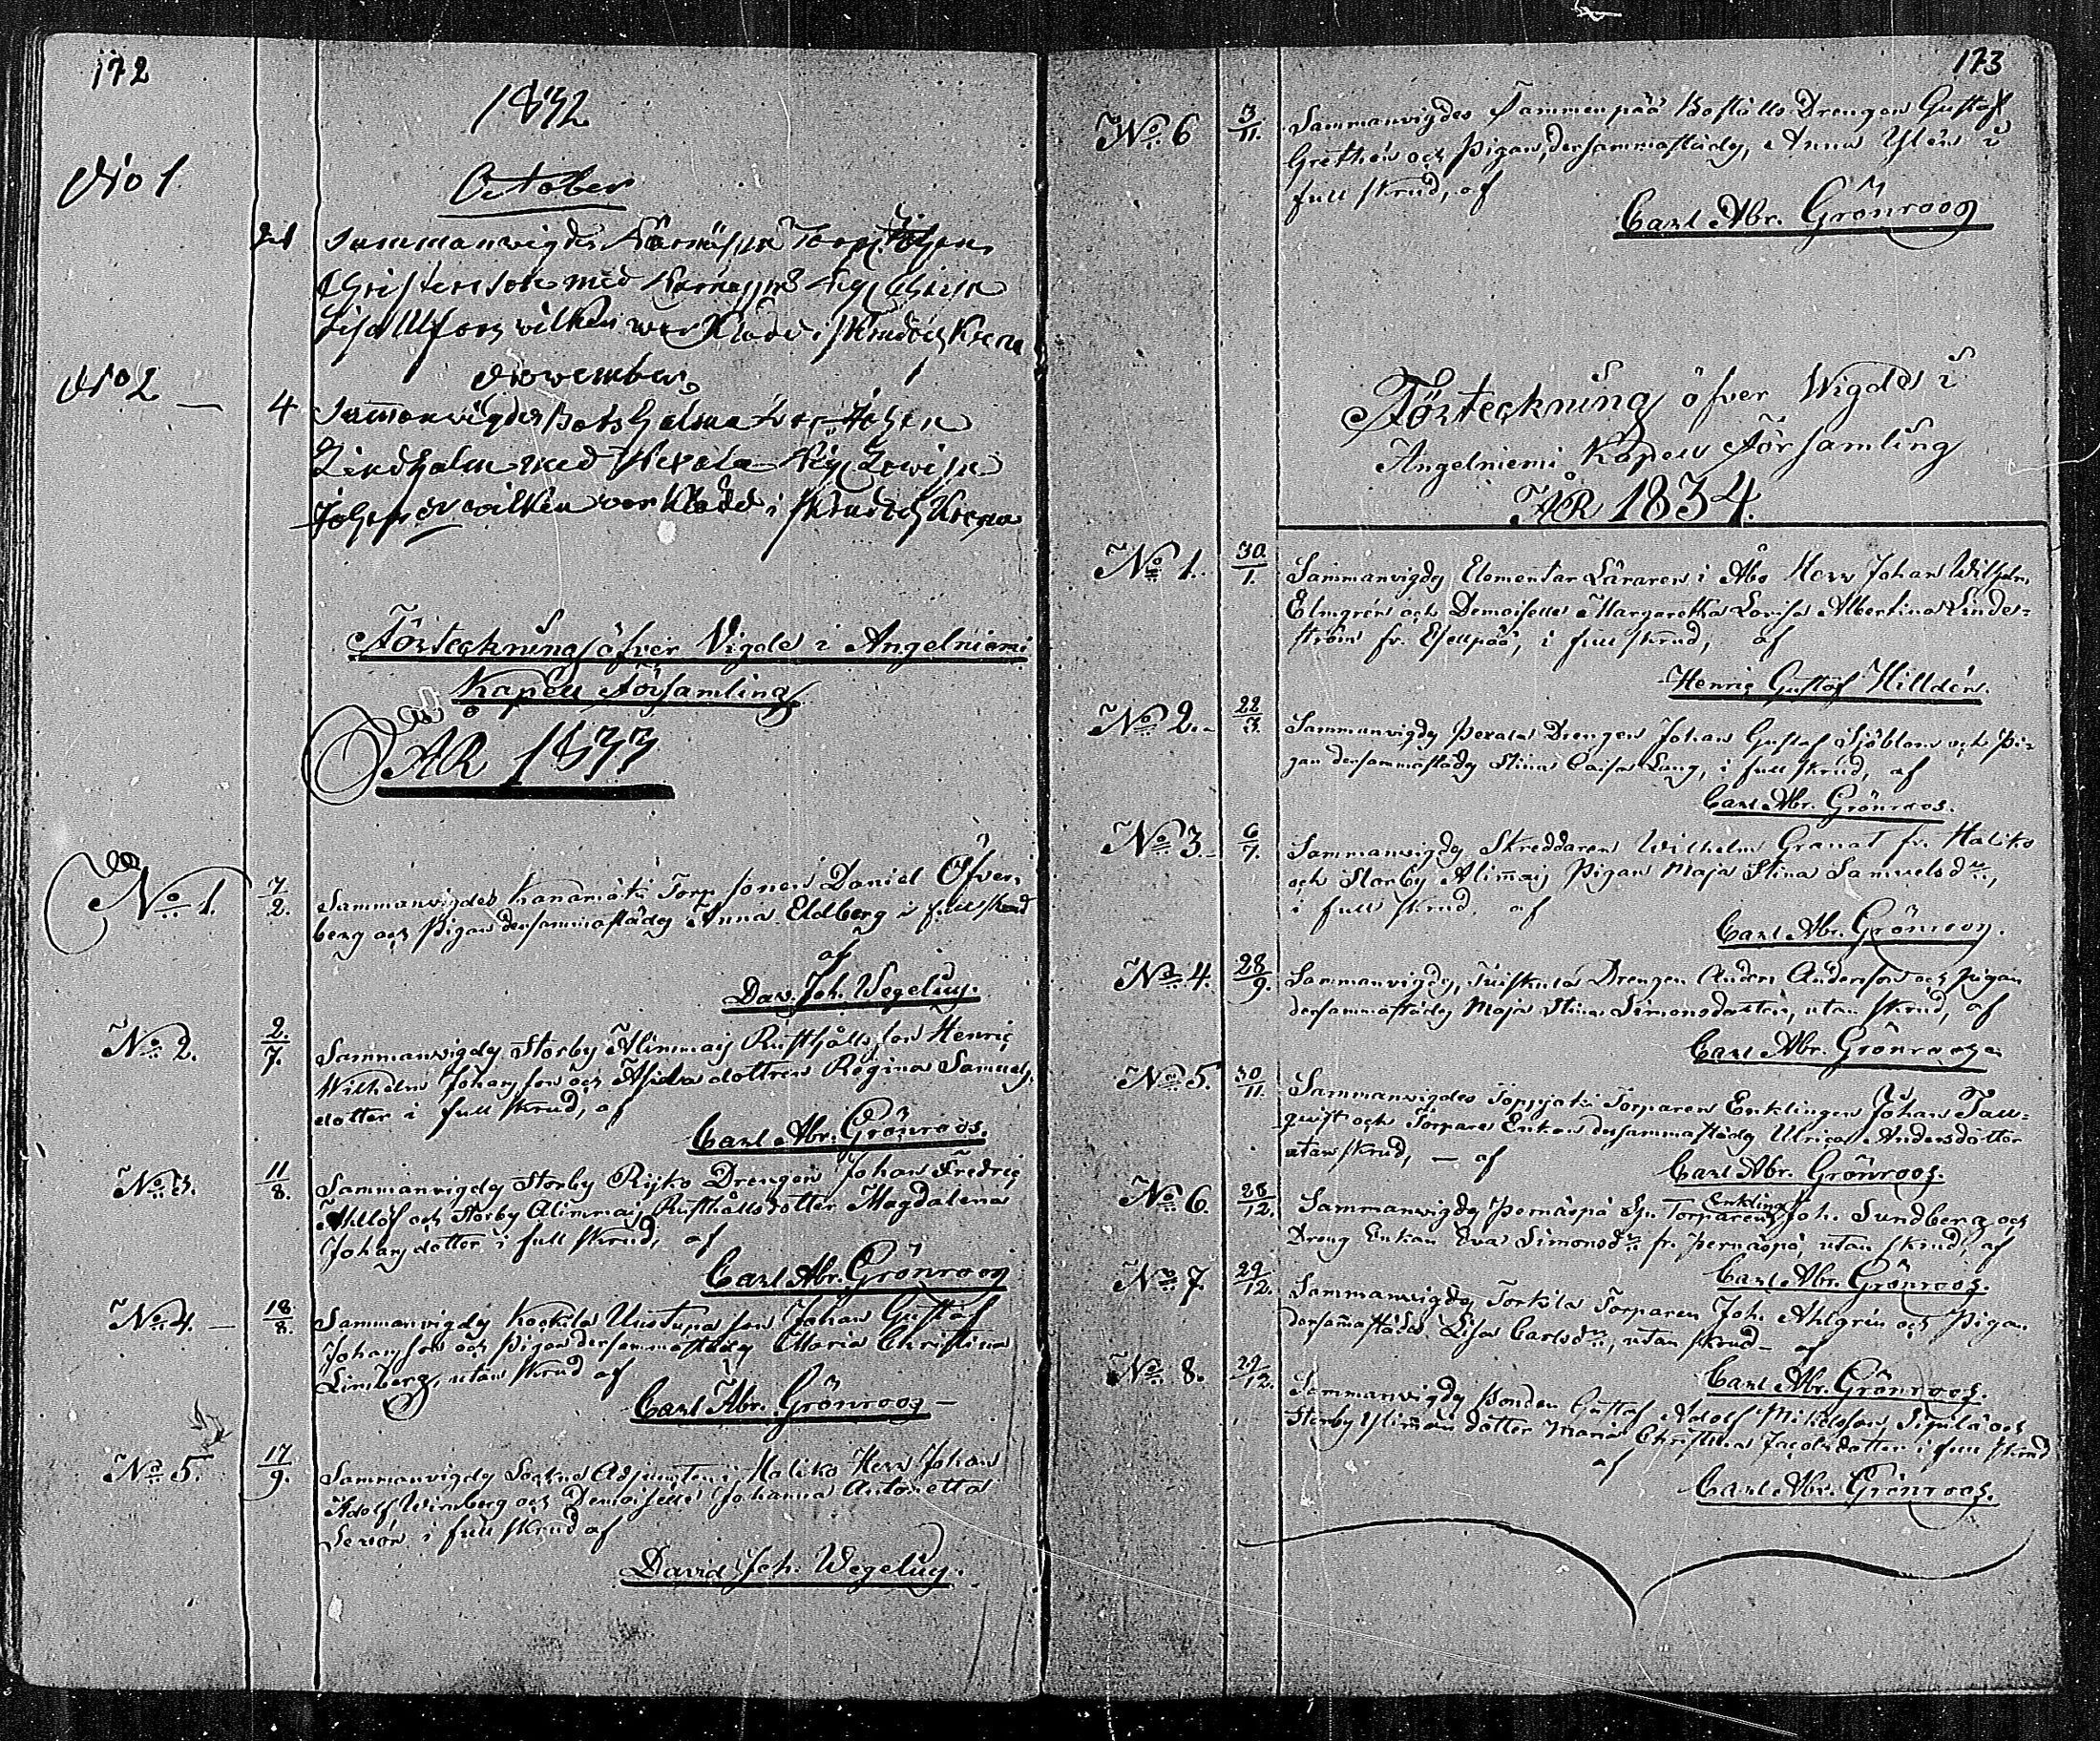 172
1832
No 1
October
Sammanvigdes
Christersson med
wilken war Klädd i skrud och Krona
November
No 2 — 4 Sammanvigdes
Lindholm med
wilken war Klädd i skrud och Krona
Förteckning öfver Vigde i Angelniemi
Kapell Församling
ÅR 1833
No 1. 7/2. Sammanvigdes Torp sonen Daniel Öfver-
berg och Pigan dersammastädes Anna Eldberg i full skrud
af
Dav. Joh. Wegelius.
No 2. 2/7. Sammanvigdes Storby Alimmais Rusthålls son Henric
Wilhelm Johansson och dottren Regina Samuels
dotter i full skrud, af
Carl Abr. Grönroos.
No 3. 11/8. Sammanvigdes Storby Rijko Drengen Johan Fredric
Ahllöf och Storby Alimmais Rusthållsdotter Magdalena
Johansdotter i full skrud, af
Carl Abr. Grönroos
No 4. — 18/8. Sammanvigdes Kockila Uustupa son Johan Gustaf
Johansson och Pigan dersammastädes Maria Christina
Limberg, utan skrud af
Carl Abr. Grönroos —
No 5. 17/9. Sammanvigdes Sockne Adjuncten i Haliko Herr Johan
Adolf Winberg och Demoiselle Johanna Antonetta
i full skrud af
David Joh. Wegelius.
173
No 6 3/11. Sammanvigdes Tammenpää Boställs Drengen Gustaf
Grethén och Pigan, dersammastädes, Anna Ylén i
full skrud, af
Carl Abr. Grönroos
Förteckning öfver Wigde i
Angelniemi Kapell Församling
ÅR 1834.
No 1. 30/1. Sammanvigdes Elementar Läraren i Åbo Herr Johan Wilhelm
Elmgrén och Demoiselle Margaretha Lovisa Albertina Linde-
ström fr. i full skrud, af
Henric Gustaf Hilldén.
No 2. - 22/3. Sammanvigdes Drengen Johan Gustaf Sjöblom och Pi-
gan dersammastädes Stina Caisa Lang, i full skrud, af
Carl Abr. Grönroos.
No 3. - 6/7. Sammanvigdes Skreddaren Wilhelm Granat fr. Haliko
och Storby Alimais Pigan Maja Stina Samuelsdr.,
i full skrud af
Carl Abr. Grönroos.
No 4. 28/9. Sammanvigdes, Drengen Anders Andersson och Pigan
dersammastädes Maja Stina Simonsdotter, utan skrud, af
Carl Abr. Grönroos.
No 5. 30/11. Sammanvigdes Toppjoki Torparen Enklingen Johan Tau-
qvist och Torpare Enkan dersammastädes Ulrica Andersdotter
utan skrud, — af
Carl Abr. Grönroos.
No 6. 28/12. Sammanvigdes Pernäspä Torparen Enkling Joh. Sundberg och
Dreng Enkan Eva Simonsdr. fr. Pernäspä, utan skrud, af
Carl Abr. Grönroos.
No 7. 29/12. Sammanvigdes Torkila Torparen Joh. Ahlgrén och Pigan
dersammastädes Lisa Carlsdr., utan skrud - af
Carl Abr. Grönroos.
No 8. 29/12. Sammanvigdes Bonden Gustaf Adolf Mikelsson Sipilä och
Storby dotter Maria Christina Jacobsdotter i full skrud
af
Carl Abr. Grönroos.